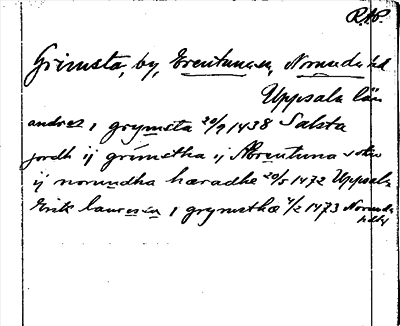 RAP.
Grimsta, by, Erentuna sn, Norunda hd
Uppsala län
andrez i grymsta 20/9 1438 Salsta
jordh ij grimstha ij Ærentuna sokn
ij norundha hæradhe 20/5 1472 Uppsala
Erik lauressn i grymsthæ 4/2 1473 Norunda
hdtg